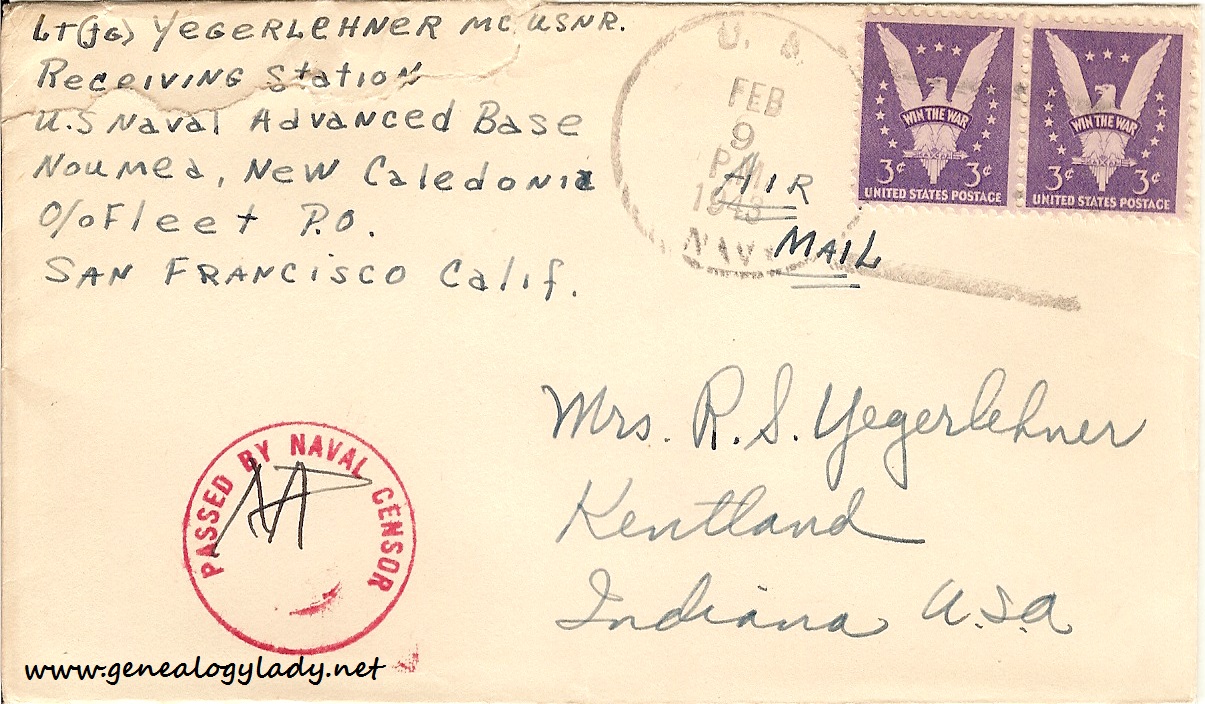 Lt(jg) Yegerlehner MC USNR.
Receiving Station
U.S Naval Advanced Base
Noumea, New Caledonia
c/o Fleet P.O.
San Francisco Calif.
U. S
FEB
9
PM
1943
NAVY
Air
Mail
WIN THE WAR
3¢ 3¢
UNITED STATES POSTAGE
WIN THE WAR
3¢ 3¢
UNITED STATES POSTAGE
Mrs. R. S. Yegerlehner
Kentland
Indiana U.S.A
PASSED BY NAVAL CENSOR
www.genealogylady.net